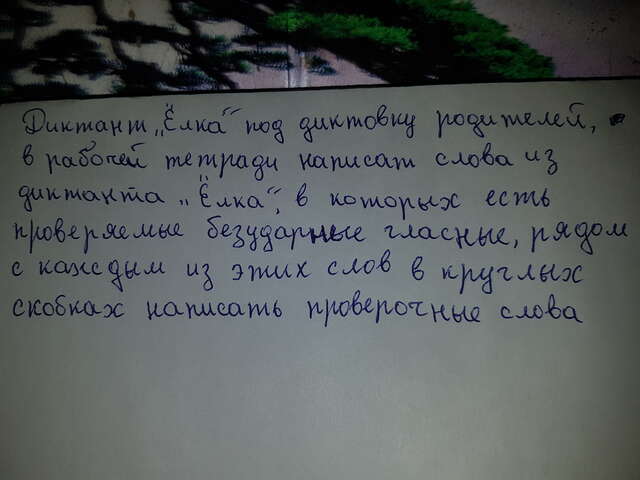 Диктант „Ёлка“ под диктовку родителей,
в рабочей тетради написат слова из
диктанта „Ёлка“, в которых есть
проверяемые безударные гласные, рядом
с каждым из этих слов в круглых
скобках написать проверочные слова